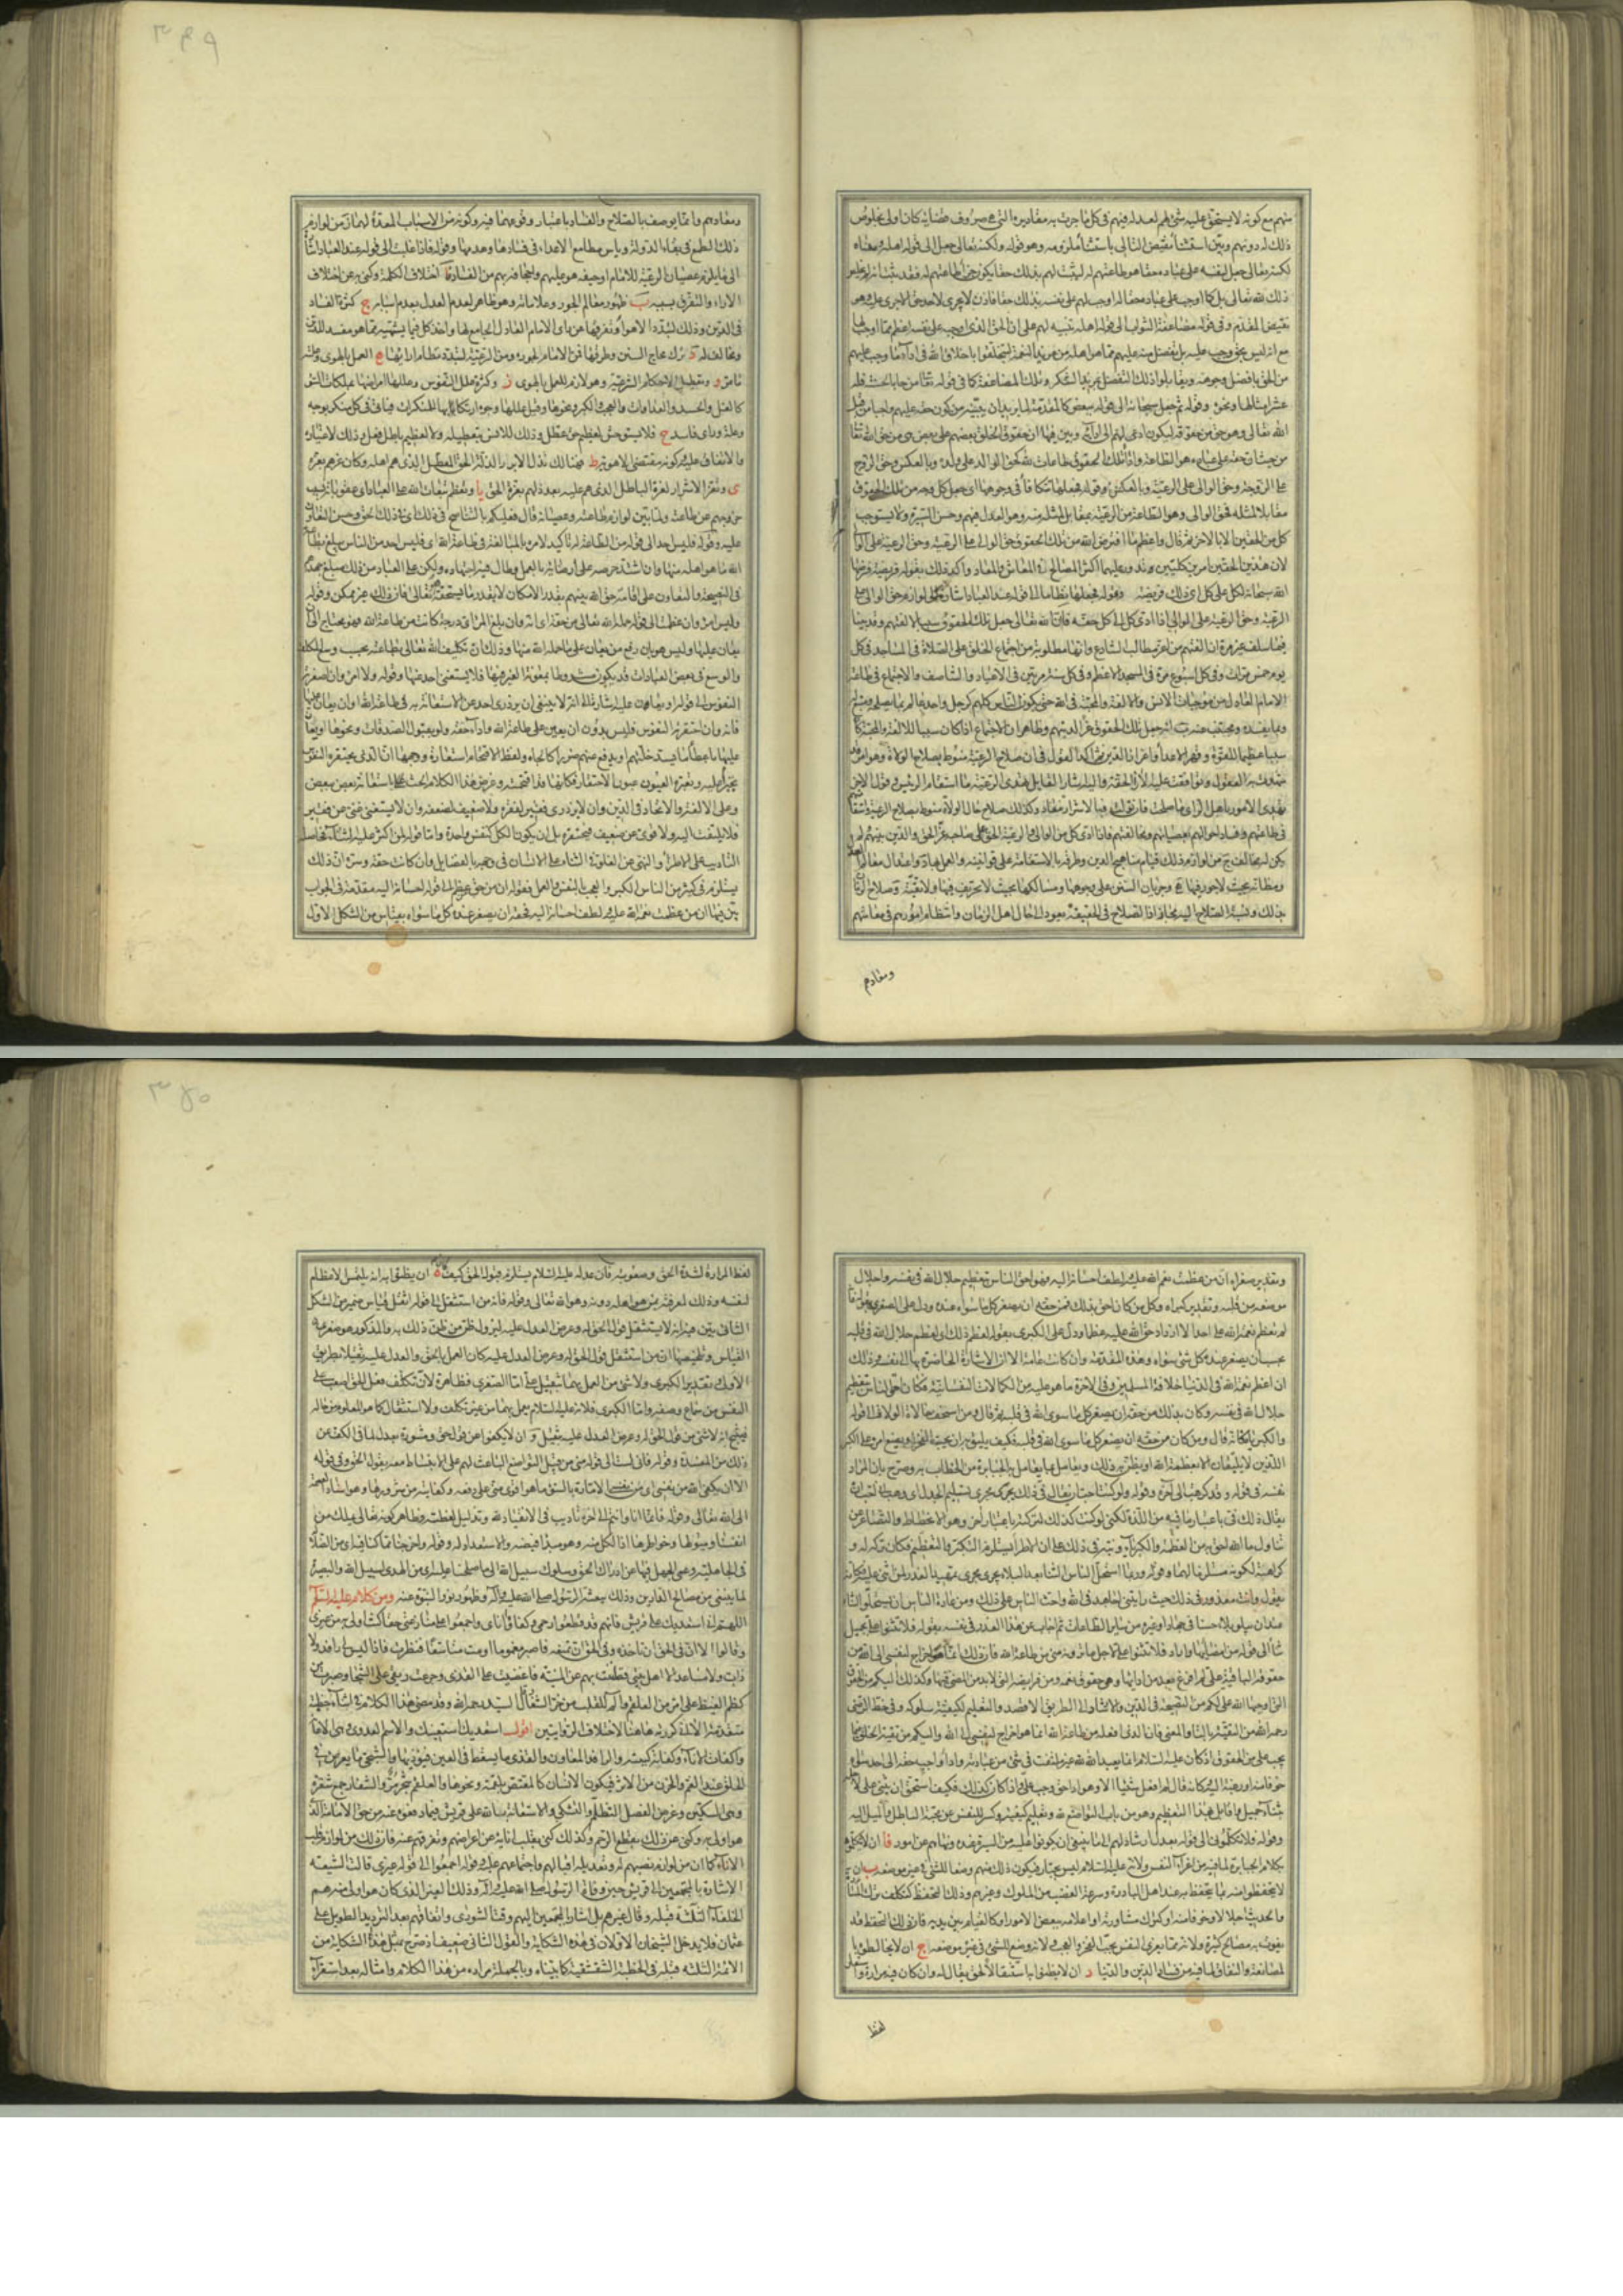 ۳۴۹
منهم مع كونه لا يستحق عليه شئ لهم لعدله فيهم فى كل ما جرت به مقاديره التى هى صروف قضائه كان اولى بخلوص
ذلك له دونهم وبين استثناء نقيض التالى باستثناء ملزومه وهو قوله ولكنه تعالى جعل الى قوله اهله ومعناه
لكنه تعالى جعل لنفسه على عباده حقا هو طاعتهم له ليثبت لهم بذلك حقا
ذلك لله تعالى بل كما اوجب على عباده حقا له اوجب لهم على نفسه بذلك حقا فاذن لا يجرى لاحد حق الا جرى عليه وهو
نقيض المقدم وفى قوله مضاعفة الثواب الى قوله اهله تنبيه لهم على ان الحق الذى اوجبه على نفسه اعظم مما اوجب لها
مع انه ليس بحق وجب عليه بل بفضل منه عليهم مما هو اهله من مزيد النعمة ليتخلقوا باخلاق الله فى اداء ما وجب عليهم
من الحق بافضل وجوهه ويقابلوا ذلك التفضل بمزيد الشكر وتلك المضاعفة كما فى قوله تعالى من جاء بالحسنة فله
عشر امثالها ونحوه وقوله ثم جعل سبحانه الى قوله ببعض كالمقدمة لما يريد ان يبينه من كون حقه عليهم واجبا من قبل
الله تعالى وهو حق من حقوقه ليكون ادعى لهم الى ادائه وبين فيها ان حقوق الخلق بعضهم على بعض هى من حق الله تعالى
من حيث ان حقه على عباده هو الطاعة واداء تلك الحقوق طاعات لله كحق الوالد على ولده وبالعكس وحق الزوج
على الزوجة وحق الوالى على الرعية وبالعكس وقوله فجعلها تتكافأ فى وجوهها اى جعل كل وجه من تلك الحقوق
مقابلا بمثله فحق الوالى وهو الطاعة من الرعية بمقابل بمثله منه وهو العدل فيهم وحسن السيرة ولا يستوجب
كل من الحقين الا بالاخر ثم قال واعظم ما افترض الله من تلك الحقوق حق الوالى على الرعية وحق الرعية على الوالى
لان هذين الحقين امرين كليين وتدور عليهما اكثر المصالح فى المعاش والمعاد واكد ذلك بقوله فريضة فرضها
الله سبحانه لكل على كل اى ذلك فريضة وقوله فجعلها نظاما الى قوله عند العباد اشارة الى لوازم حق الوالى على
الرعية وحق الرعية على الوالى اذا ادى كل الى كل حقه فان الله تعالى جعل تلك الحقوق سببا لالفتهم وقد بينا
فيما سلف غير مرة ان الالفة من اعز مطالب الشارع وانها مطلوبة من اجتماع الخلق على الصلاة فى المساجد فى كل
يوم خمس مرات وفى كل اسبوع مرة فى المسجد الاعظم وفى كل سنة مرتين فى الاعياد والتناصف والاجتماع فى طاعة
الامام العادل من موجبات الانس والالفة والمحبة فى الله حتى يكون الناس كلهم كرجل واحد عالم بما يصلحه ومتبع له
وبما يفسده ومجتنب عنه ثم جعل تلك الحقوق عزا لدينهم وظاهر ان الاجتماع اذا كان سببا للالفة والمحبة كان
سببا عظيما للقوة وقهر الاعداء واعزاز الدين ثم اكد القول فى ان صلاح الرعية منوط بصلاح الولاة وهو امر
شهدت به العقول وتوافقت عليه الاراء المحققة واليه اشار القائل تهدى الرعية ما استقام الرئيس وقول الاخر
تهدى الامور باهل الراى ما صلحت فان تولت فبالاشرار تنقاد وكذلك صلاح حال الولاة منوط بصلاح الرعية واستقامتهم
فى طاعتهم وفساد احوالهم بعصيانهم ومخالفتهم فاذا ادى كل من الوالى والرعية الحق الى صاحبه عز الحق والدين بينهم
ثم من لوازم ذلك قيام مناهج الدين وطرقه بالاستقامة على قوانينه والعمل بها واعتدال معالم العدل
ومظانه بحيث لا جور فيها وجريان السنن على وجوهها ومسالكها بحيث لا تحريف فيها وصلاح الزمان
بذلك ونسبة الصلاح اليه مجاز اذ الصلاح فى الحقيقة يعود الى حال اهل الزمان وانتظام امورهم فى معاشهم
ومعادهم
ومعادهم وانما يوصف بالصلاح والفساد باعتبار وقوعهما فيه وكونه من الاسباب المعدة لهما ثم من لوازم
ذلك الطمع فى بقاء الدولة وياس مطامع الاعداء فى فسادها وهدمها وقوله فاذا غلبت الى قوله عند العباد اشارة
الى ما يلزم عصيان الرعية للامام او حيفه هو عليهم واجحافه بهم من الفساد ا اختلاف الكلمة وكنى به عن اختلاف
الاراء والتفرق بسببه ب ظهور معالم الجور وعلاماته وهو ظاهر لعدم العدل بعدم اسبابه ج كثرة الفساد
فى الدين وذلك لتبدد الاهواء وتفرقها عن راى الامام العادل الجامع لها واخذ كل فيما يشتهيه مما هو مفسد للدين
ومخالف له د ترك محاج السنن وطرقها فمن الامام لجوره ومن الرعية لتبدد نظام ارائها ه العمل بالهوى وعلته
ما مر و وتعطيل الاحكام الشرعية وهو لازم للعمل بالهوى ز وكثرة علل النفوس وعللها امراضها بملكات السوء
كالغل والحسد والعداوات والعجب والكبر ونحوها وقيل عللها وجوه ارتكابها للمنكرات فيأتى فى كل منكر بوجه
وعلة وراى فاسد ح فلا يستوحش لعظيم حق عطل وذلك للانس بتعطيله ولا لعظيم باطل فعل وذلك لاعتياده
والاتفاق عليه وكونه مقتضى الاهوية ط فهنالك تذل الابرار لذلة الحق المعطل الذى هم اهله وكان عزهم بعزه
ى وتعز الاشرار لعزة الباطل الذى هم عليه بعد ذلهم بعزة الحق يا وتعظم تبعات الله على العباد اى عقوباته بسبب
خروجهم عن طاعته ولما بين لوازم طاعته وعصيانه قال فعليكم بالتناصح فى ذلك اى فى ذلك الحق وحسن التعاون
عليه وقوله فليس احد الى قوله من الطاعة له تاكيد لامره بالمبالغة فى طاعة الله اى فليس احد من الناس يبلغ بطاعة
الله ما هو اهله منها وان اشتد حرصه على ارضائه بالعمل وطال فيه اجتهاده ولكن على العباد من ذلك مبلغ جهدهم
فى النصيحة والتعاون على اقامة حق الله بينهم بقدر الامكان لا بقدر ما يستحقه تعالى فان ذلك غير ممكن وقوله
وليس امرؤ وان عظمت الى قوله حمله الله تعالى من حقه اى انه وان بلغ المرء اى درجة كانت من طاعة الله فهو محتاج الى ان
يعان عليها وليس هو بان رفع من ان يعان على ما حمله الله منها وذلك ان تكليف الله تعالى بطاعته بحسب وسع المكلف
والوسع فى بعض العبادات قد يكون مشروطا بمعونة الغير فيها فلا يستغنى احد عنها وقوله ولا امرؤ وان صغرته
النفوس الى قوله او يعان عليه اشارة الى انه لا ينبغى ان يزدرى احد عن الاستعانة به فى طاعة الله او ان يعان عليها
فانه وان احتقرته النفوس فليس بدون ان يعين على طاعة الله واداء حقه ولو بقبول الصدقات ونحوها او يعان
عليها باعطاء ما يسد خلتهم او يدفع عنهم ضررا كالجاه ولفظ الاقتحام استعارة وجهها ان الذى يحتقره النفوس
يتجرأ عليه وتعبره العيون عبور الاحتقار فكانها قد اقتحمته وغرض هذا الكلام الحث على استعانة بعض ببعض
وعلى الالفة والاتحاد فى الدين وان لا يزدرى فقير لفقره ولا ضعيف لضعفه وان لا يستغنى غنى عن فقير
فلا يلتفت اليه ولا قوى عن ضعيف فيحتقره بل ان يكون الكل كنفس واحدة
التاديب على الاطراء والنهى عن الغلو فى الثناء على الانسان فى وجهه بالفضايل وان كانت حقة وسره ان ذلك
يستلزم فى كثير من الناس الكبر والعجب بالنفس والعمل فقوله ان من حق من عظم الى قوله احسانه اليه مقدمة فى الجواب
بين فيها ان من عظمت نعمة الله عليه ولطف احسانه اليه فحقه ان يصغر عنده كل ما سواه بقياس من الشكل الاول
۳۵۰
وتقدير صغراه ان من عظمت نعم الله عليه ولطف احسانه اليه فهو احق الناس بتعظيم جلال الله فى نفسه واجلال
موضعه من قلبه وتقدير كبراه وكل من كان احق بذلك فمن حقه ان يصغر كل ما سواه عنده ودل على الصغرى بقوله فانه
لم تعظم نعمة الله على احد الا ازداد حق الله عليه عظما ودل على الكبرى بقوله لعظم ذلك اى لعظم جلال الله فى قلبه
يجب ان يصغر عنده كل شئ سواه وهذه المقدمة وان كانت عامة الا ان الاشارة الحاضرة بها الى نفسه وذلك
ان اعظم نعمة الله فى الدنيا خلافة المسلمين وفى الاخرة ما هو عليه من الكمالات النفسانية فكان احق الناس بتعظيم
جلال الله فى نفسه وكان بذلك من حقه ان يصغر كل ما سوى الله فى قلبه ثم قال ومن اسخف حالات الولاة الى قوله
والكبر فكانه قال ومن كان من حقه ان يصغر كل ما سوى الله فى قلبه فكيف يليق به ان يحب الفخر او يضع امره على الكبر
اللذين لا يليقان الا بعظمة الله او يظن به ذلك ويعامل بما يعامل به الجبابرة من الخطاب به وصرح بان المراد
نفسه فى قوله وقد كرهت الى اخره وقوله ولو كنت احب ان يقال لى ذلك يجرى مجرى تسليم الجدل اى وهب انى احب ان
يقال ذلك فى باعتبار ما فيه من اللذة لكنى لو كنت كذلك لتركته باعتبار اخر وهو الانحطاط والتصاغر عن
تناول ما الله احق به من العظمة والكبرياء ونبه فى ذلك على ان الاطراء يستلزم التكبر والتعظيم فكان تركه له و
كراهيته لكونه مستلزما لهما وقوله وربما استحلى الناس الثناء بعد البلاء يجرى مجرى تمهيد العذر لمن اثنى عليه فكانه
يقول وانت معذور فى ذلك حيث رايتنى اجاهد فى الله واحث الناس على ذلك ومن عادة الناس ان يستحلوا الثناء
عند ان يبلوا بلاء حسنا فى جهاد او غيره من ساير الطاعات ثم اجاب عن هذا العذر فى نفسه بقوله فلا تثنوا على بجميل
ثناء الى قوله من امضائها واراد فلا تثنوا على لاجل ما ترونه منى من طاعة الله فان ذلك انما هو اخراج لنفسى الى الله من
حقوقه الباقية على لم افرغ بعد من ادائها وهى حقوق نعمه ومن فرايضه التى لابد من المضى فيها وكذلك اليكم من الحقوق
التى اوجبها الله على لكم من النصيحة فى الدين والارشاد الى الطريق الافضل والتعليم لكيفية سلوكه وفى خط الرضى
رحمه الله من التقية بالتاء والمعنى فان الذى افعله من طاعة الله انما هو اخراج لنفسى الى الله واليكم من تقية الخلق فيما
يجب على من الحقوق اذ كان عليه السلام انما يعبد الله لله غير ملتفت فى شئ من عبادته واداء واجب حقه الى احد سواه
خوفا منه او رغبة اليه فكانه قال لم افعل شيئا الا وهو اداء حق وجب على واذا كان كذلك فكيف استحق ان يثنى على لاجله
بثناء جميل واقابل بهذا التعظيم وهو من باب التواضع لله وتعليم كيفيته وكسر للنفس عن محبة الباطل والميل اليه
وقوله فلا تكلمونى الى قوله بعدل ارشاد لهم الى ما ينبغى ان يكونوا عليه من السيرة عنده ونهاهم عن امور ا ان لا يكلموه
بكلام الجبابرة لما فيه من اغراء النفس ولانه عليه السلام ليس بجبار فيكون ذلك منهم وضعا للشئ فى غير موضعه ب ان
لا يتحفظوا منه بما يتحفظ به عند اهل البادرة وسرعة الغضب من الملوك وغيرهم وذلك التحفظ كتكلف ترك المشاورة
والحديث اجلالا وخوفا منه او كترك مشاورته او اعلامه ببعض الامور او كالقيام بين يديه فان ذلك التحفظ قد
يفوت به مصالح كثيرة ولانه مما يغرى النفس بحب الفخر والعجب ولانه وضع للشئ فى غير موضعه ج ان لا يخالطوه با
لمصانعة والنفاق لما فيه من فساد الدين والدنيا د ان لا يظنوا به استثقالا لحق يقال له وان كان فيه مرارة واستعار
لفظ
لفظ المرارة لشدة الحق وصعوبته فان عدله عليه السلام يستلزم قبوله الحق كيف كان ه ان يظنوا به انه يلتمس الاعظام
لنفسه وذلك لمعرفته بمن هو اهله دونه وهو الله تعالى وقوله فانه من استثقل الى قوله اثقل قياس ضمير من الشكل
الثانى بين فيه انه لا يستثقل قول الحق له وعرض العدل عليه ليزول ظن من ظن ذلك به والمذكور هو صغرى
القياس وتلخيصها ان من استثقل قول الحق له وعرض العدل عليه كان العمل بالحق والعدل عليه ثقيلا بطريق
الاولى وتقدير الكبرى ولا شئ من العمل بهما بثقيل على اما الصغرى فظاهرة لان تكلف فعل الحق اصعب على
النفس من سماع وصفه واما الكبرى فلانه عليه السلام يعمل بهما من غير تكلف ولا استثقال كما هو المعلوم من حاله
فينتج انه لا شئ من قول الحق له وعرض العدل عليه بثقيل و ان لا يكفوا عن قول حق ومشورة بعدل لما فى الكف عن
ذلك من المفسدة وقوله فانى لست الى قوله منى من قبيل التواضع الباعث لهم على الانبساط معه بقول الحق وفى قوله
الا ان يكفى الله من نفسى اى من نفسى الامارة بالسوء ما هو اقوى منى على دفعه وكفايته من شرورها وهو اسناد العصمة
الى الله تعالى وقوله فانما انا وانتم الى اخره تاديب فى الانقياد لله وتذليل لعظمته وظاهر كونه تعالى يملك من
انفسنا وميولها وخواطرها اذ الكل منه وهو مبدأ فيضه والاستعداد له وقوله واخرجنا مما كنا فيه اى من الضلالة
فى الجاهلية وعمى الجهل فيها عن ادراك الحق وسلوك سبيل الله الى ما صلحنا عليه اى من الهدى لسبيل الله والبصيرة
لما ينبغى من مصالح الدارين وذلك ببعثة الرسول صلى الله عليه وآله وظهور نور النبوة عنه ومن كلام له عليه السلام
اللهم انى استعديك على قريش فانهم قد قطعوا رحمى واكفأوا انائى واجمعوا على منازعتى حقا كنت اولى به من غيرى
وقالوا الا ان فى الحق ان تاخذه وفى الحق ان تمنعه فاصبر مغموما او مت متاسفا فنظرت فاذا ليس لى رافد ولا
ذاب ولا مساعد الا اهل بيتى فضننت بهم عن المنية فاغضيت على القذى وجرعت ريقى على الشجا وصبرت من
كظم الغيظ على امر من العلقم وآلم للقلب من حز الشفار قال السيد رحمه الله وقد مضى هذا الكلام فى اثناء خطبة
متقدمة الا انى كررته هاهنا لاختلاف الروايتين اقول استعديك استعينك والاسم العدوى وهى الاعانة
واكفأت الاناء وكفأته كببته والرافد المعاون والقذى ما يسقط فى العين فيؤذيها والشجى ما يعرض فى
الحلق عند الغم والحزن من الاثر فيكون الانسان كالمغتص بلقمة ونحوها والعلقم شجر مر والشفار جمع شفرة
وهى السكين وغرض الفصل التظلم والتشكى والاستعانة بالله على قريش فيما دفعوه عنه من حق الامامة الذى
هو اولى به وكنى عن ذلك بقطع الرحم وكذلك كنى بقلب انائه عن اعراضهم وتفرقهم عنه فان ذلك من لوازم قلب
الاناء كما ان من لوازم نصبهم له وتعديله اقبالهم واجتماعهم عليه وقوله اجمعوا الى قوله غيرى قالت الشيعة
الاشارة بالمجتمعين الى قريش حين وفاة الرسول صلى الله عليه وآله وذلك الغير الذى كان هو اولى منه هم
الخلفاء الثلثة قبله وقال غيرهم بل اشار بالمجتمعين اليهم وقت الشورى واتفاقهم بعد الترديد الطويل على
عثمان فلا يدخل الشيخان الاولان فى هذه الشكاية والقول الثانى ضعيف اذ صرح بمثل هذه الشكاية من
الائمة الثلثة قبله فى الخطبة الشقشقية كما بيناه وبالجملة مراده من هذا الكلام وامثاله بعد استقراء